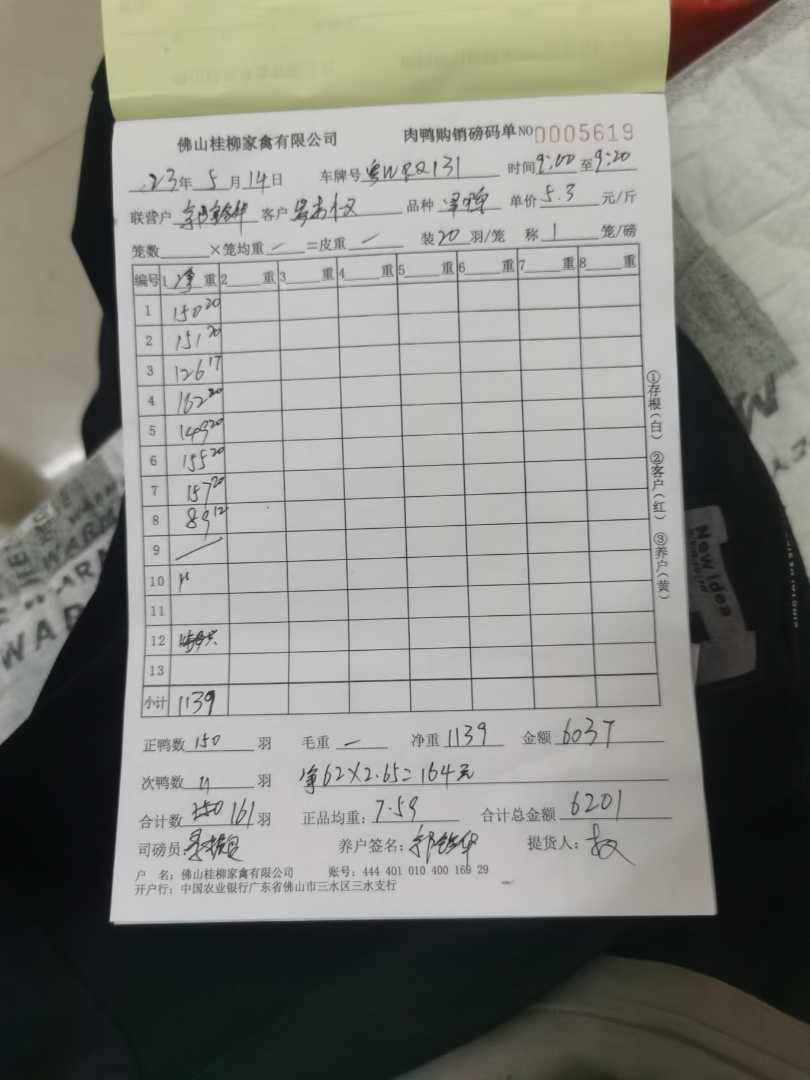 佛山桂柳家禽有限公司 肉鸭购销磅码单 NO 0005619
23年 5月14日 车牌号 粤WRQ131 时间 9:00 至 9:20
联营户 客户 品种 单价 5.3 元/斤
笼数 ×笼均重 — =皮重 — 装 20 羽/笼 称 1 笼/磅
编号 1 净 重 2 重 3 重 4 重 5 重 6 重 7 重 8 重
1 150 20
2 151 20
3 126 17
4 162 20
5 149 20
6 155 20
7 157 20
8 89 12
9
10
11
12
13
小计 1139
正鸭数 150 羽 毛重 — 净重 1139 金额 6037
次鸭数 11 羽 净62×2.65=164元
合计数 161 羽 正品均重: 7.59 合计总金额 6201
司磅员: 养户签名: 提货人:
户 名: 佛山桂柳家禽有限公司 账号: 444 401 010 400 169 29
开户行: 中国农业银行广东省佛山市三水区三水支行
①存根(白) ②客户(红) ③养户(黄)
New idea
WARM